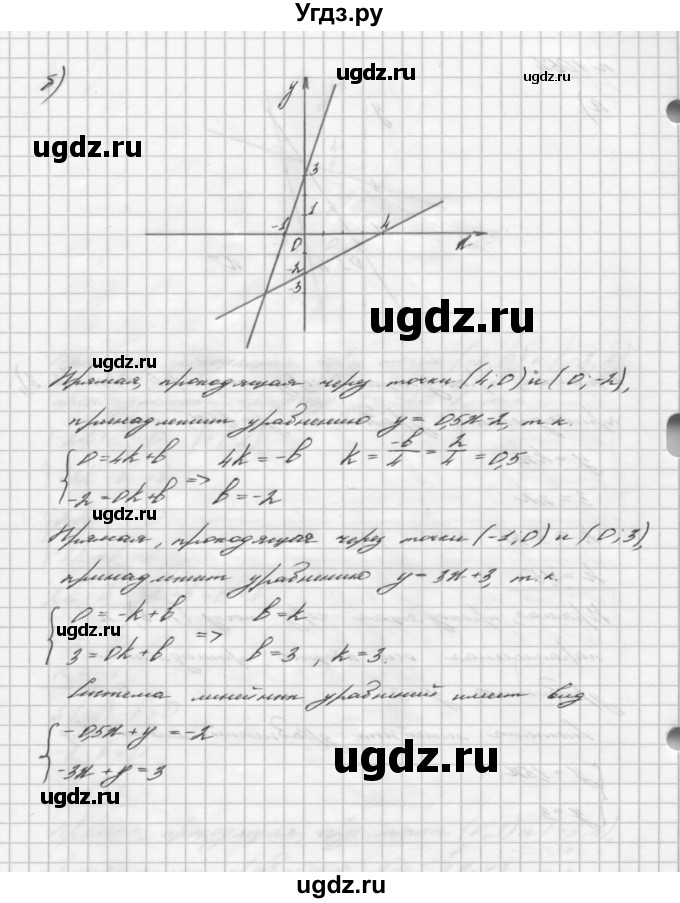 Угдз.ру
б)
y
3
1
-1
0
4
x
-2
-3
Прямая, проходящая через точки (4;0) и (0;-2),
принадлежит уравнению y = 0,5x-2, т.к.
{0=4k+b 4k=-b k = -b/4 = 2/4 = 0,5
-2=0k+b => b=-2
Прямая, проходящая через точки (-1;0) и (0;3),
принадлежит уравнению y = 3x+3, т.к.
{0=-k+b b=k
3=0k+b => b=3, k=3.
Система линейных уравнений имеет вид
{-0,5x+y=-2
-3x+y=3
ugdz.ru
ugdz.ru
ugdz.ru
ugdz.ru
ugdz.ru
ugdz.ru
ugdz.ru
ugdz.ru
ugdz.ru
ugdz.ru